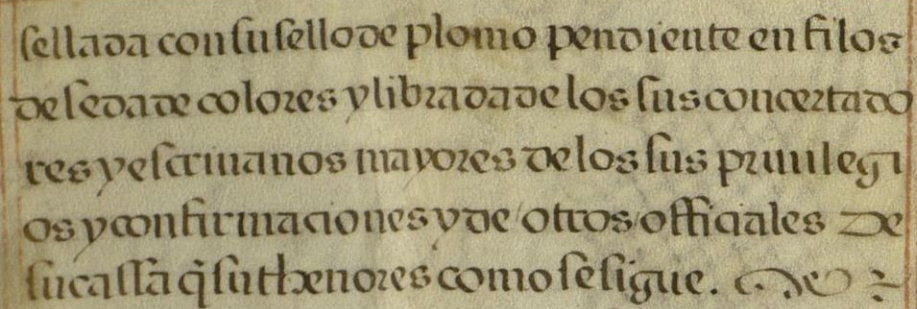 sellada con su sello de plomo pendiente en filos
de seda de colores y librada de los sus concertado
res y escriuanos mayores de los sus priuilegi
os y confirmaciones y de otros officiales De
su cassa q̃ su thenores como se sigue.